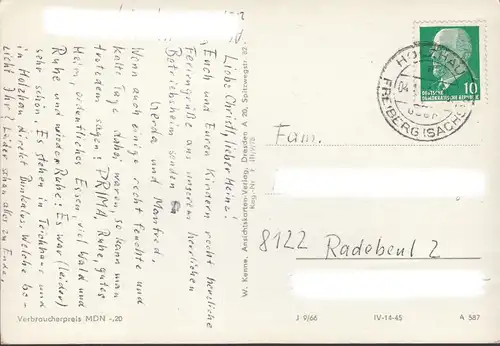 Liebe Christl, lieber Heinz!
Euch und Euren Kindern recht herzliche
Feriengrüße aus unserem herrlichen
Betriebsheim senden
Gerda und Manfred.
Wenn auch einige recht feuchte und
kalte Tage dabei waren, so kann man
trotzdem sagen: PRIMA, Ruhe, gutes
Heim, ordentliches Essen, viel Wald und
Ruhe und wieder Ruhe! Es war (leider)
sehr schön. Es stehen in Teichhaus und
in Holzhau direkt Bungalows, welche be-
sicht Ihr? Leider schon alles zu Ende,
Verbraucherpreis MDN -,20
W. Kenne, Ansichtskarten-Verlag, Dresden A 20, Spitzwegstr. 62
Reg.-Nr.
HOLZHAU
04.
FREIBERG (SACHS)
10
DEUTSCHE
DEMOKRATISCHE REPUBLIK
Fam.
8122 Radebeul 2
J 9/66
IV-14-45
A 587